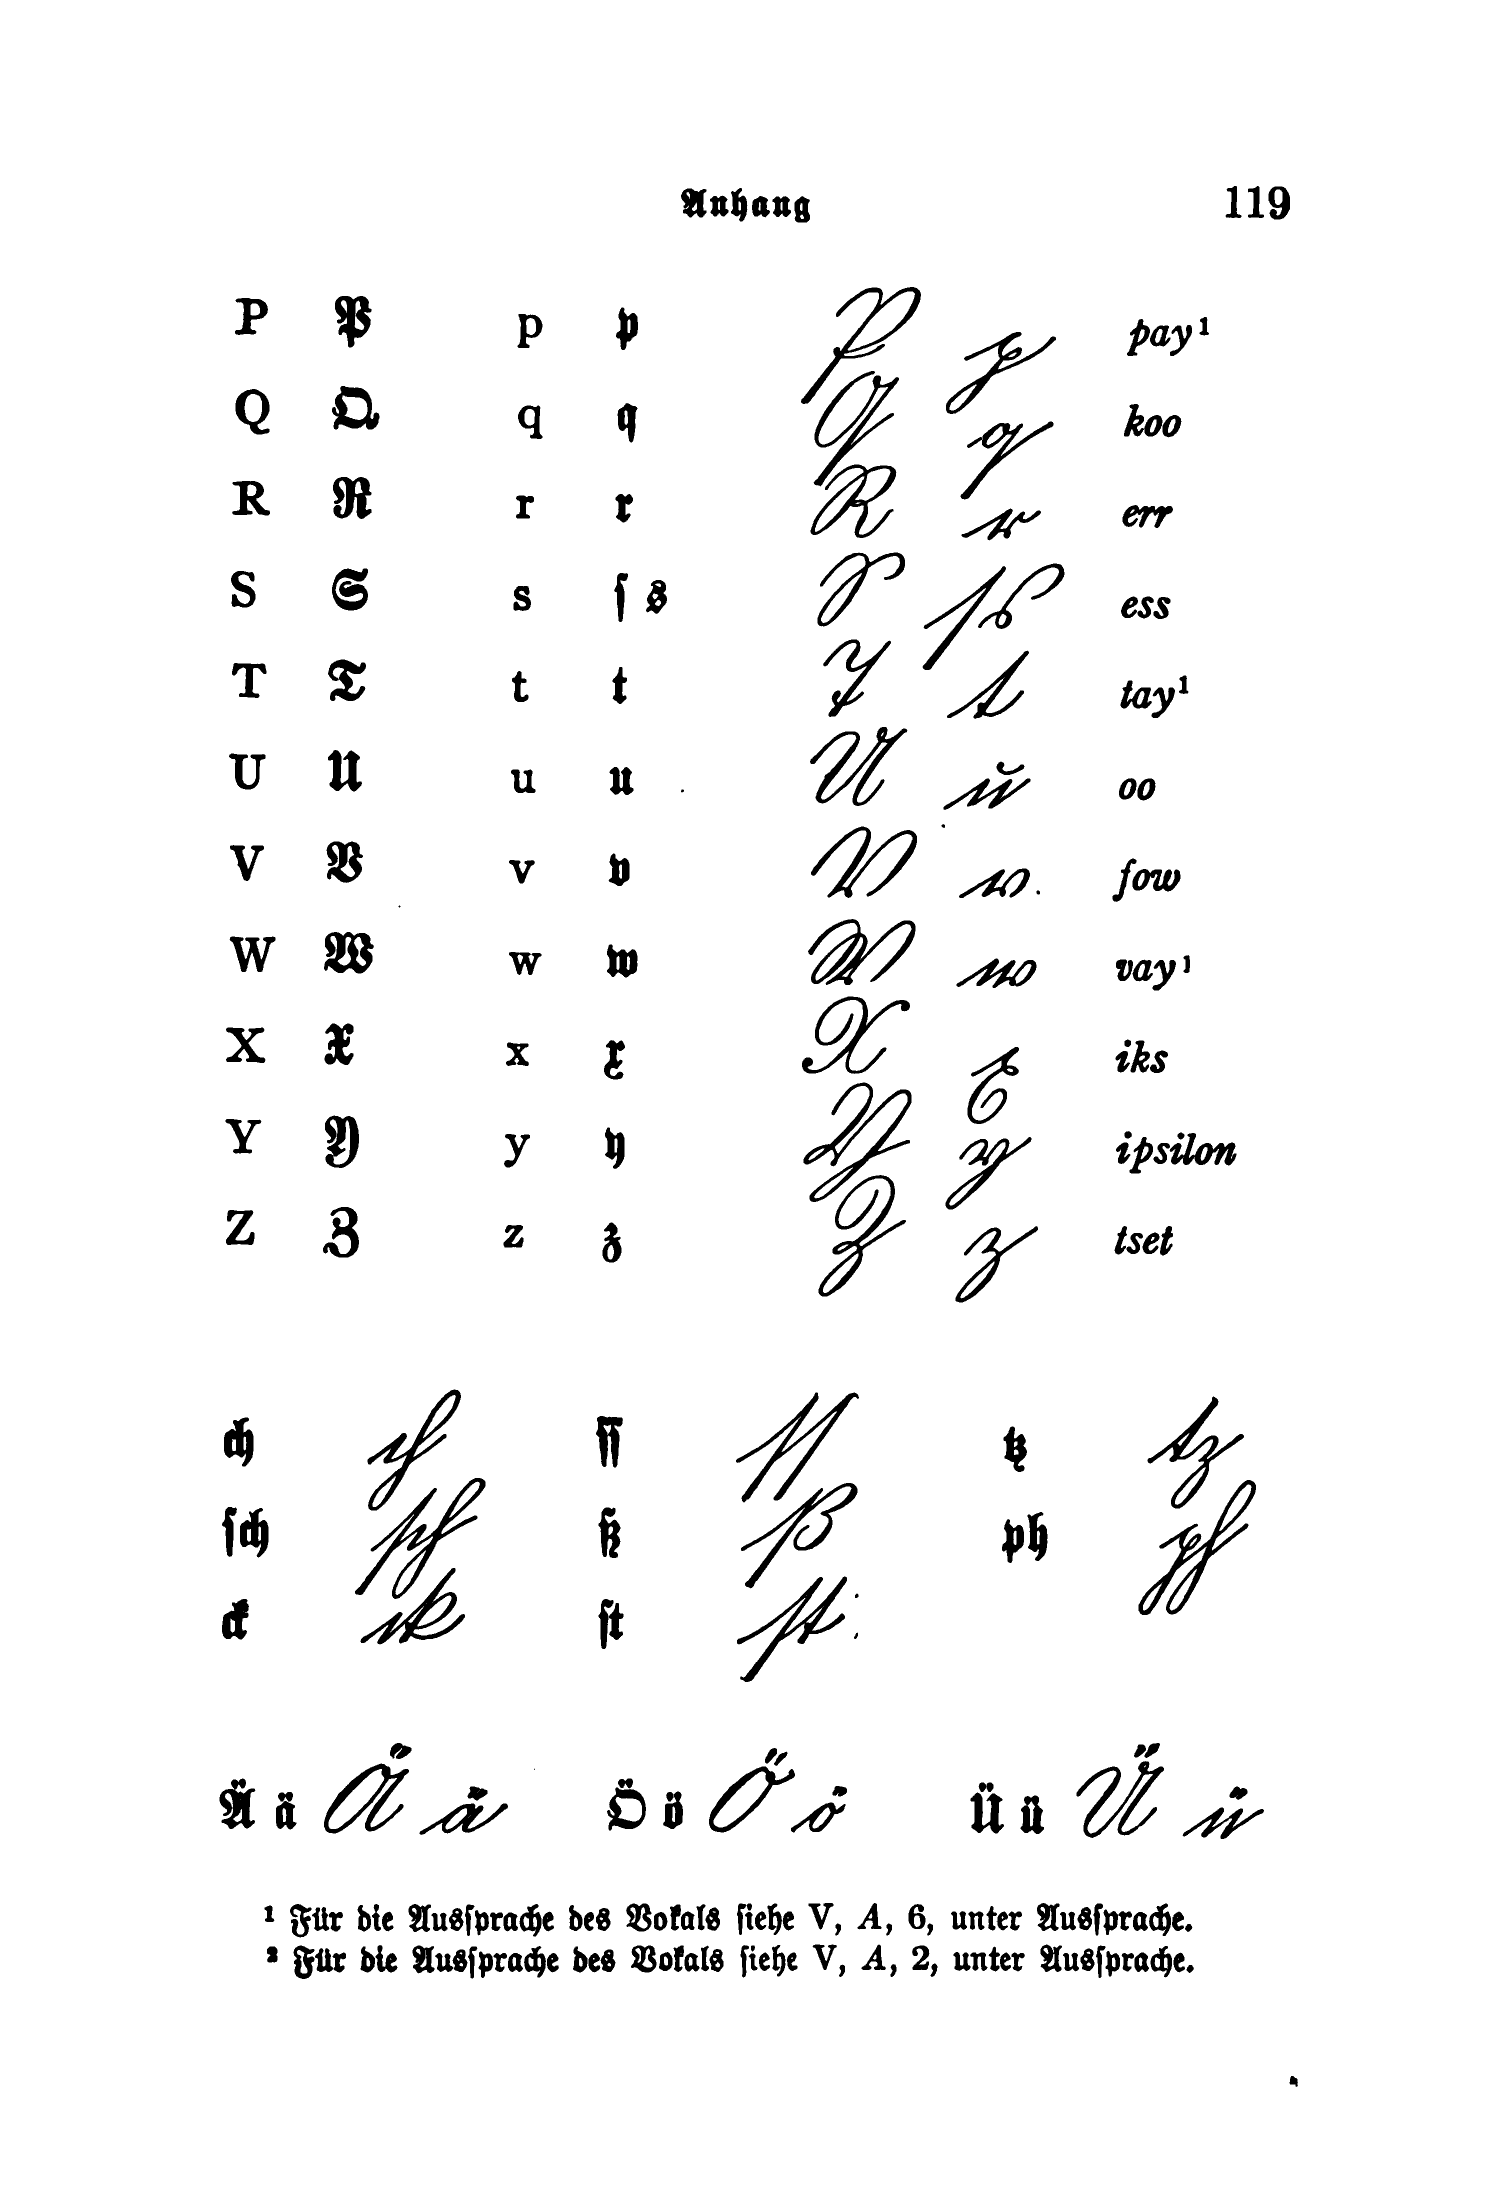 Anhang 119
P P p p P p pay¹
Q Q q q Q q koo
R R r r R r err
S S s ſ s S ſ s ess
T T t t T t tay¹
U U u u U u oo
V V v v V v fow
W W w w W w vay¹
X X x x X x iks
Y Y y y Y y ipsilon
Z Z z z Z z tset
ch ch ſſ ſſ tz tz
ſch ſch ß ß ph ph
ck ck ſt ſt
Ä ä Ä ä Ö ö Ö ö Ü ü Ü ü
¹ Für die Ausſprache des Vokals ſiehe V, A, 6, unter Ausſprache.
² Für die Ausſprache des Vokals ſiehe V, A, 2, unter Ausſprache.